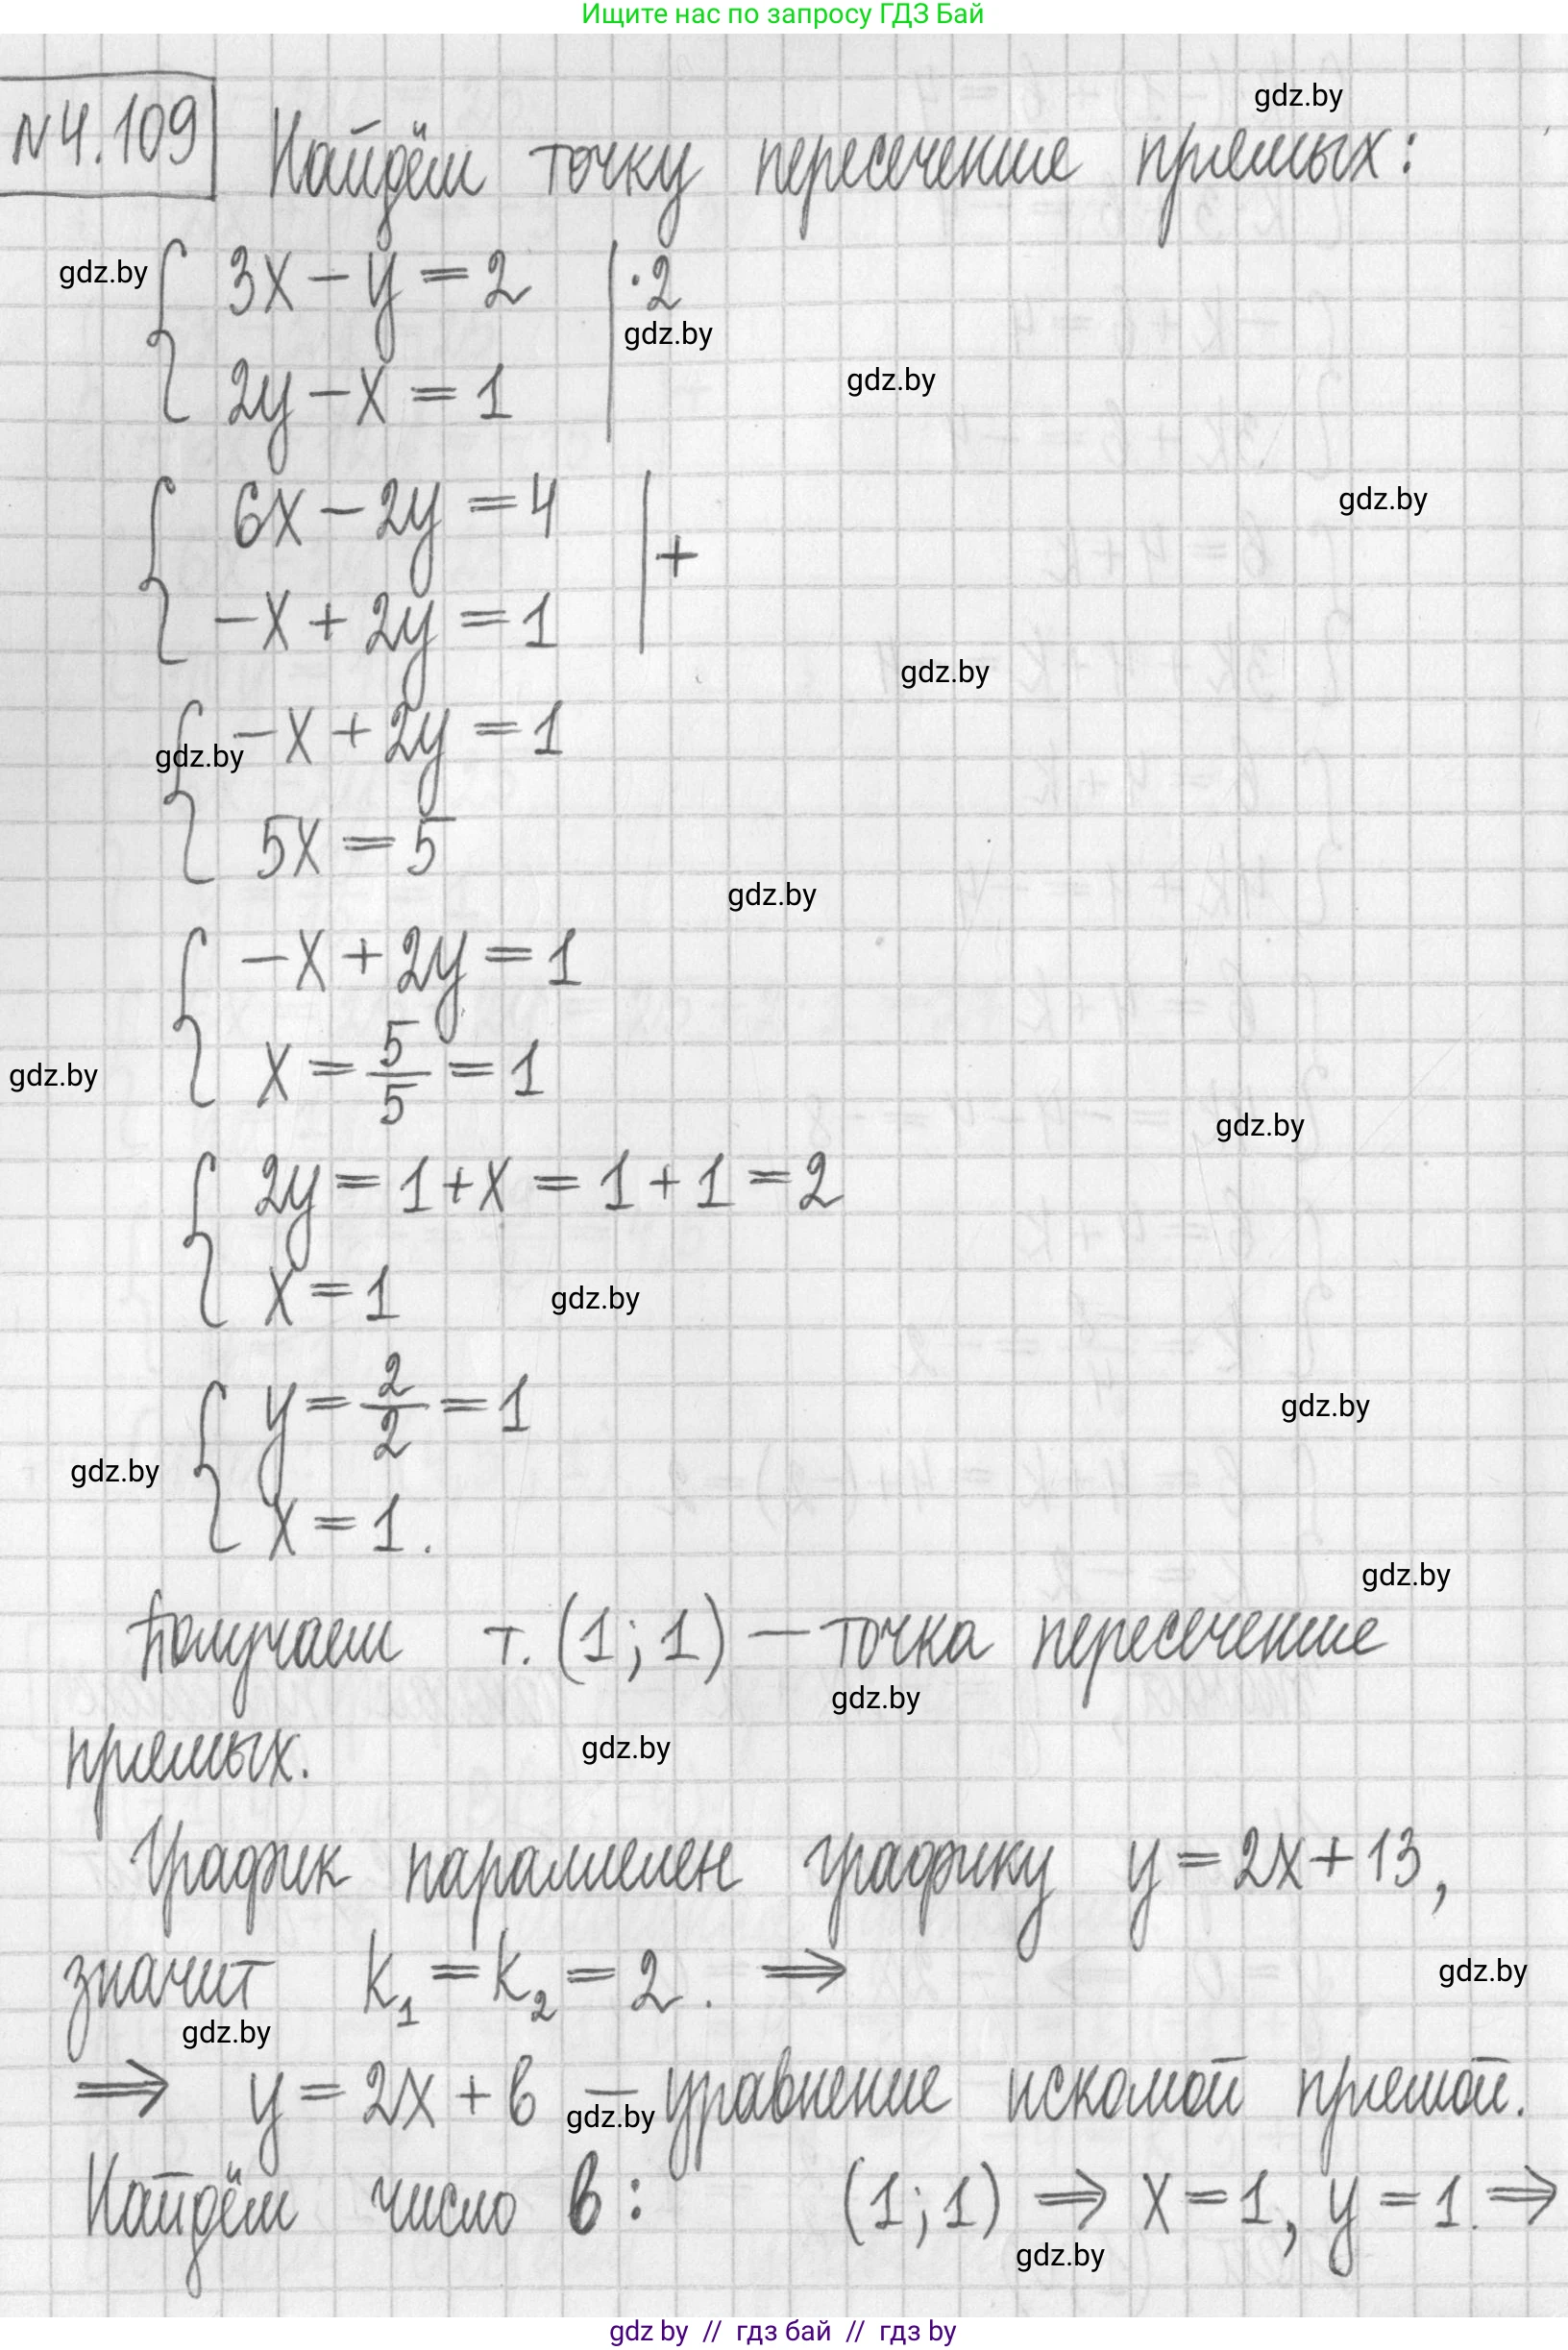 Ищите нас по запросу ГДЗ Бай
gdz.by
N4.109 Найдём точку пересечение прямых:
gdz.by
3x - y = 2 | ·2
gdz.by
2y - x = 1
gdz.by
6x - 2y = 4
gdz.by
| +
-x + 2y = 1
gdz.by
-x + 2y = 1
gdz.by
5x = 5
gdz.by
-x + 2y = 1
x = 5/5 = 1
gdz.by
gdz.by
2y = 1 + x = 1 + 1 = 2
x = 1
gdz.by
y = 2/2 = 1
gdz.by
gdz.by
x = 1.
gdz.by
Получаем т. (1; 1) — точка пересечение
gdz.by
прямых.
gdz.by
График параллелен графику y = 2x + 13,
значит k₁ = k₂ = 2. ⇒
gdz.by
gdz.by
⇒ y = 2x + b — уравнение искомой прямой.
gdz.by
Найдём число b: (1; 1) ⇒ x = 1, y = 1. ⇒
gdz.by
gdz by // гдз бай // гдз by